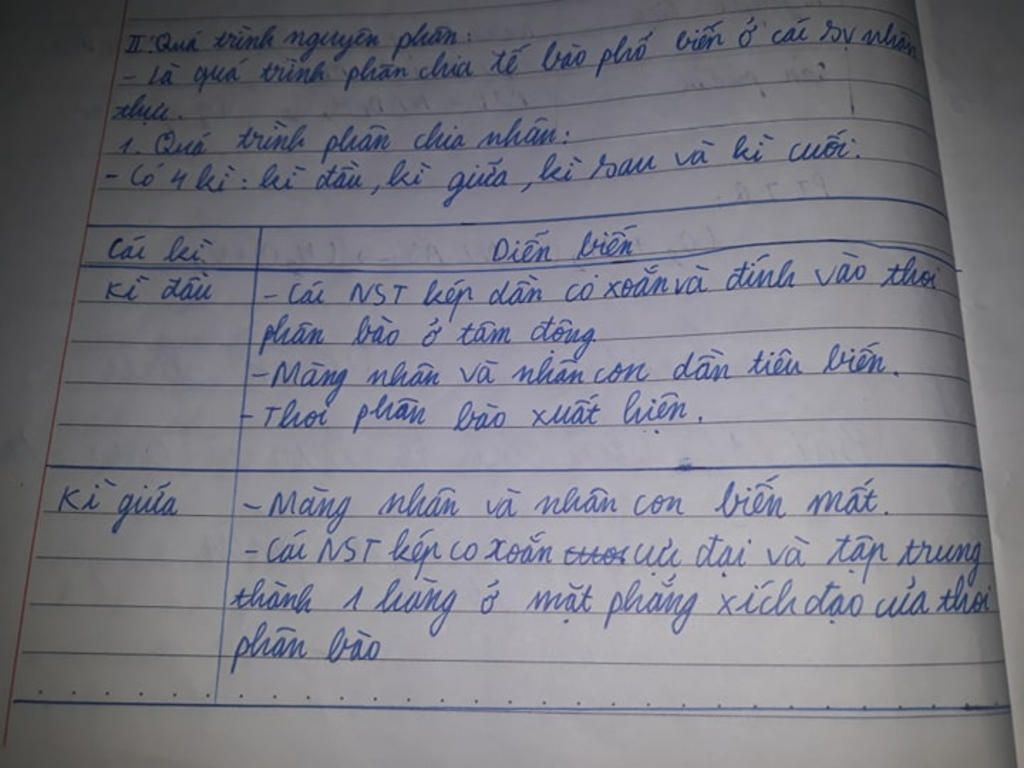 II. Quá trình nguyên phân:
- Là quá trình phân chia tế bào phổ biến ở các SV nhân
thực.
1. Quá trình phân chia nhân:
- Có 4 kì: kì đầu, kì giữa, kì sau và kì cuối.
Các kì Diễn biến
Kì đầu - Các NST kép dần co xoắn và đính vào thoi
phân bào ở tâm động.
- Màng nhân và nhân con dần tiêu biến.
- Thoi phân bào xuất hiện.
Kì giữa - Màng nhân và nhân con biến mất.
- Các NST kép co xoắn cực đại và tập trung
thành 1 hàng ở mặt phẳng xích đạo của thoi
phân bào